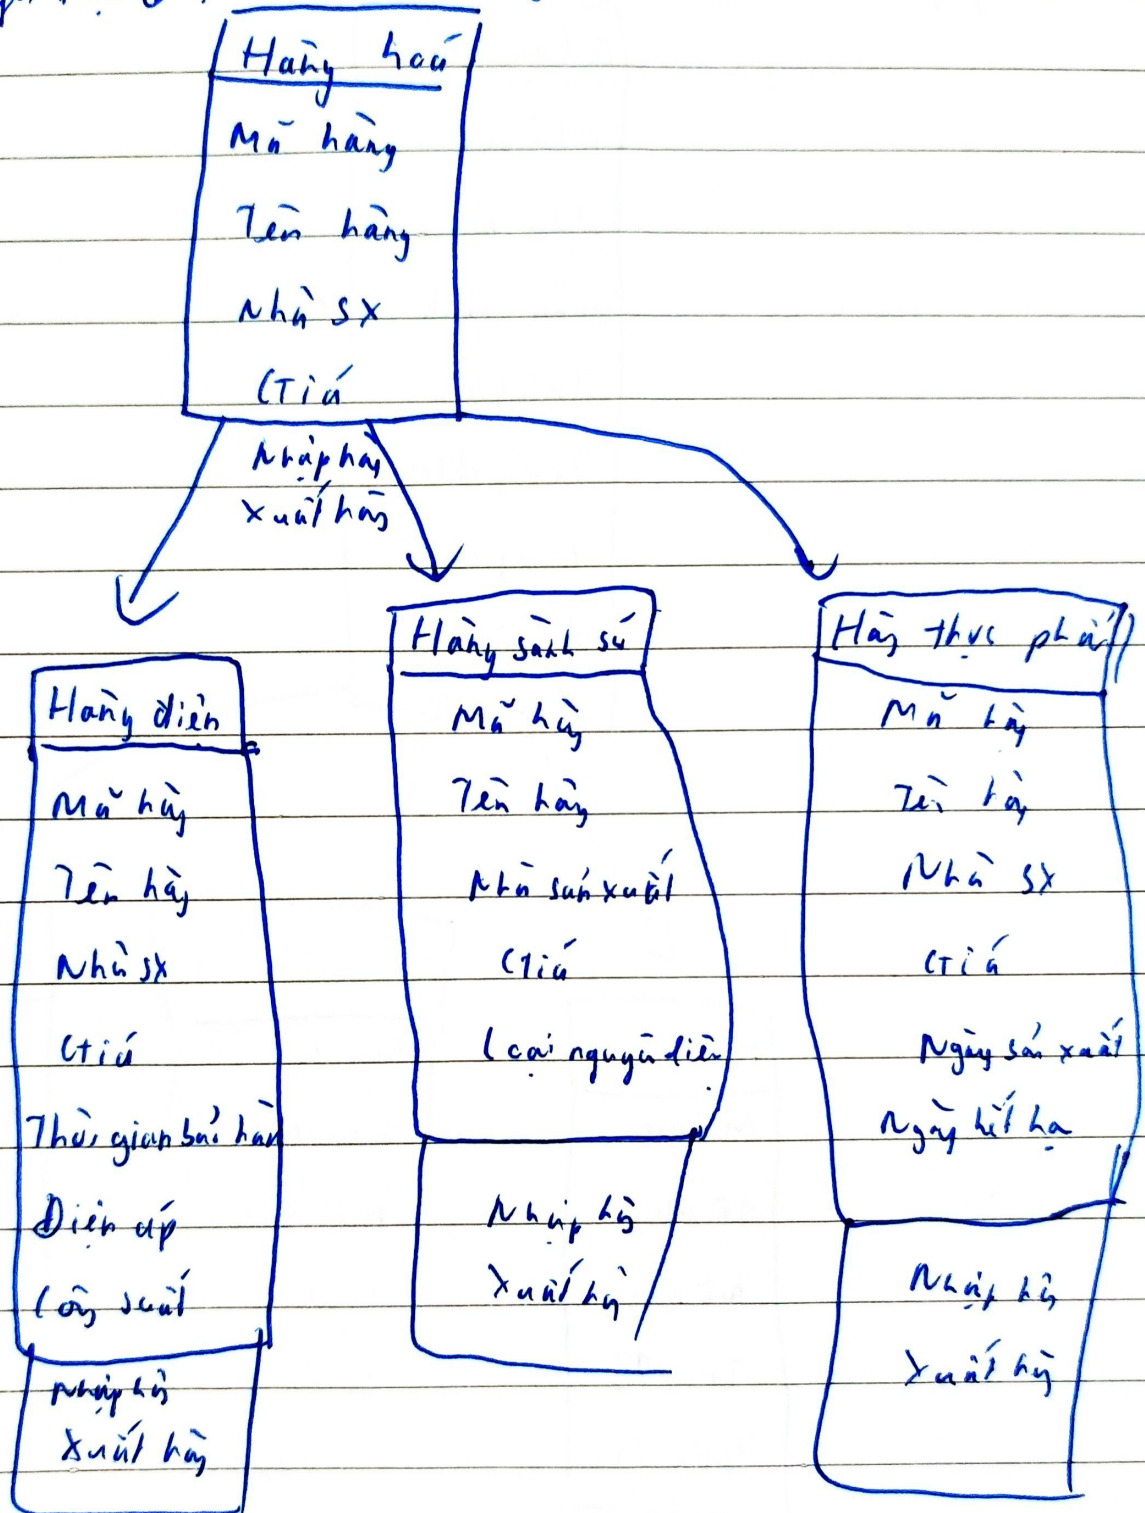 Hàng hoá
Mã hàng
Tên hàng
Nhà sx
Giá
Nhập hàng
Xuất hàng
Hàng điện
Mã hàng
Tên hàng
Nhà sx
Giá
Thời gian bảo hàn
Điện áp
Công suất
Nhập hàng
Xuất hàng
Hàng sành sứ
Mã hàng
Tên hàng
Nhà sản xuất
Giá
Loại nguyên liệu
Nhập hàng
Xuất hàng
Hàng thực phẩm
Mã hàng
Tên hàng
Nhà sx
Giá
Ngày sản xuất
Ngày hết hạ
Nhập hàng
Xuất hàng